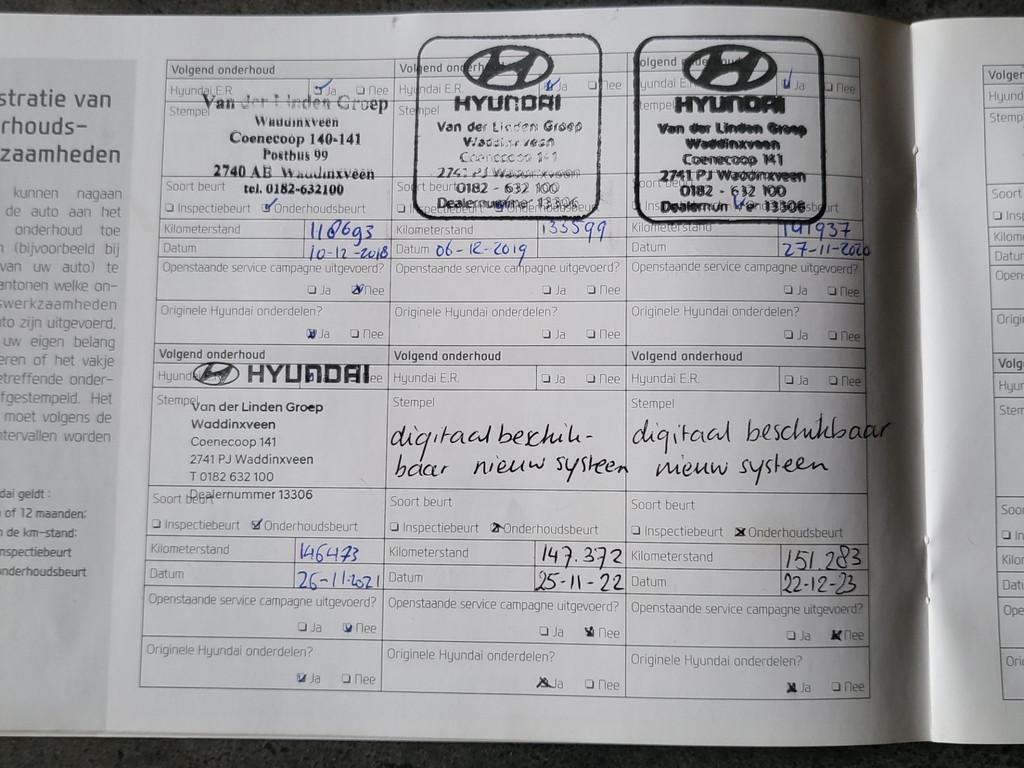 stratie van
rhouds-
zaamheden
kunnen nagaan
de auto aan het
onderhoud toe
(bijvoorbeeld bij
van uw auto) te
antonen welke on-
swerkzaamheden
to zijn uitgevoerd,
uw eigen belang
eren of het vakje
etreffende onder-
fgestempeld. Het
moet volgens de
ntervallen worden
dai geldt :
of 12 maanden;
n de km-stand:
nspectiebeurt
onderhoudsbeurt
Volgend onderhoud
Hyundai E.R. Ja
Stempel
Van der Linden Groep
Waddinxveen
Coenecoop 140-141
Postbus 99
2740 AB Waddinxveen
tel. 0182-632100
Soort beurt
Inspectiebeurt Onderhoudsbeurt
Kilometerstand 118693
Datum 10-12-2018
Openstaande service campagne uitgevoerd?
Ja Nee
Originele Hyundai onderdelen?
Ja Nee
Volgend onderhoud
Hyundai E.R. Ja Nee
Stempel
HYUNDAI
Van der Linden Groep
Waddinxveen
Coenecoop 141
2741 PJ Waddinxveen
0182 - 632 100
Dealernummer 13306
Soort beurt
Inspectiebeurt Onderhoudsbeurt
Kilometerstand 133599
Datum 06-12-2019
Openstaande service campagne uitgevoerd?
Ja Nee
Originele Hyundai onderdelen?
Ja Nee
Volgend onderhoud
Hyundai E.R. Ja Nee
Stempel
HYUNDAI
Van der Linden Groep
Waddinxveen
Coenecoop 141
2741 PJ Waddinxveen
0182 - 632 100
13306
Soort beurt
Inspectiebeurt
Kilometerstand 141937
Datum 27-11-2020
Openstaande service campagne uitgevoerd?
Ja Nee
Originele Hyundai onderdelen?
Ja Nee
Volgend onderhoud
HYUNDAI
Stempel
Van der Linden Groep
Waddinxveen
Coenecoop 141
2741 PJ Waddinxveen
T 0182 632 100
Dealernummer 13306
Soort beurt
Inspectiebeurt Onderhoudsbeurt
Kilometerstand 146473
Datum 26-11-2021
Openstaande service campagne uitgevoerd?
Ja Nee
Originele Hyundai onderdelen?
Ja Nee
Volgend onderhoud
Hyundai E.R. Ja Nee
Stempel
digitaal beschik-
baar nieuw systeem
Soort beurt
Inspectiebeurt Onderhoudsbeurt
Kilometerstand 147.372
Datum 25-11-22
Openstaande service campagne uitgevoerd?
Ja Nee
Originele Hyundai onderdelen?
Ja Nee
Volgend onderhoud
Hyundai E.R. Ja Nee
Stempel
digitaal beschikbaar
nieuw systeem
Soort beurt
Inspectiebeurt Onderhoudsbeurt
Kilometerstand 151.283
Datum 22-12-23
Openstaande service campagne uitgevoerd?
Ja Nee
Originele Hyundai onderdelen?
Ja Nee